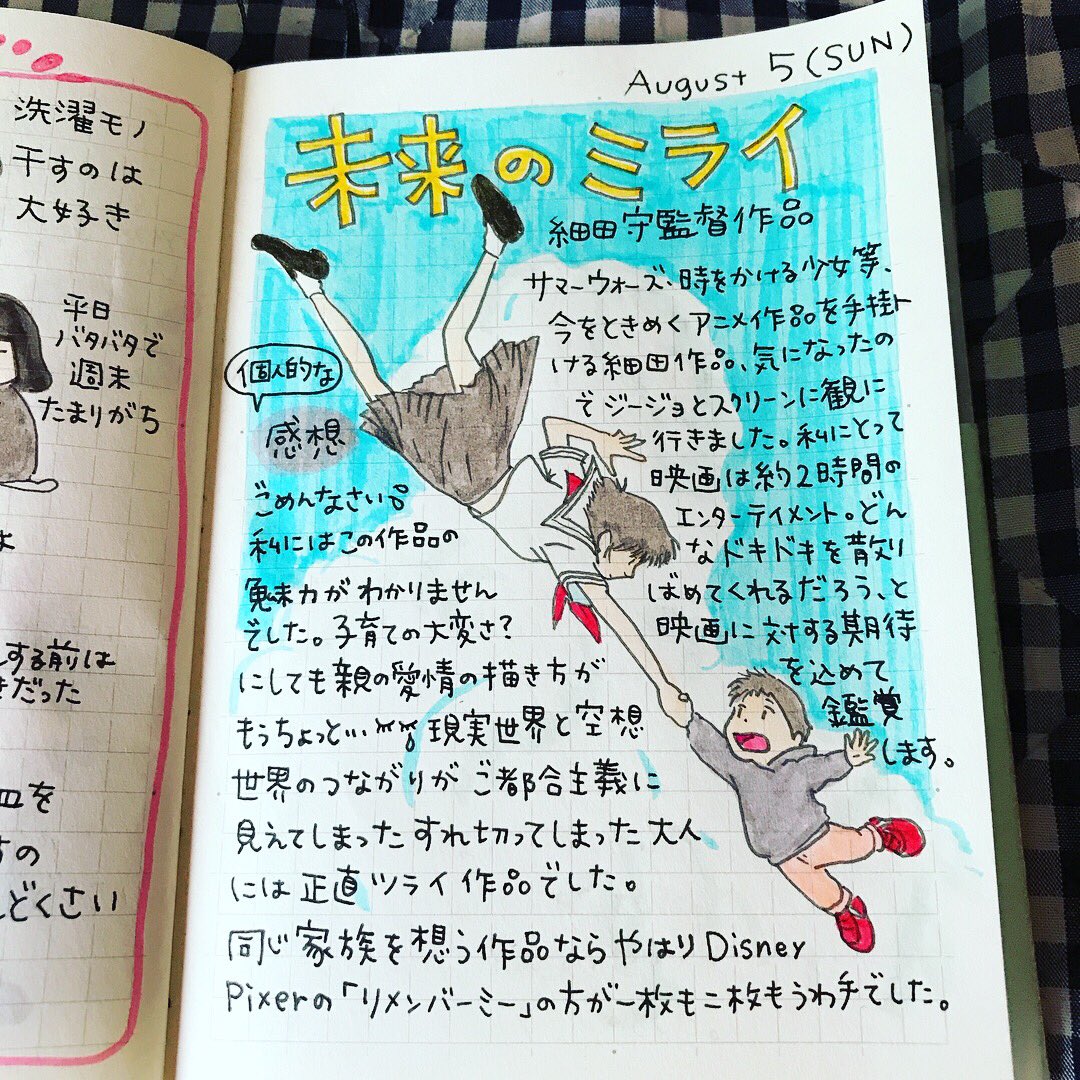 洗濯モノ
干すのは
大好き
平日
バタバタで
週末
たまりがち
する前は
きだった
皿を
すの
んどくさい
August 5 (SUN)
未来のミライ
細田守監督作品
サマーウォーズ、時をかける少女等、
今をときめくアニメ作品を手掛
ける細田作品、気になったの
でジージョとスクリーンに観に
行きました。私にとって
映画は約2時間の
エンターテイメント。どん
なドキドキを散り
ばめてくれるだろう、と
映画に対する期待
を込めて
鑑賞
します。
個人的な
感想
ごめんなさい。
私にはこの作品の
魅力がわかりません
でした。子育ての大変さ?
にしても親の愛情の描き方が
もうちょっと…現実世界と空想
世界のつながりがご都合主義に
見えてしまったすれ切ってしまった大人
には正直ツライ作品でした。
同じ家族を想う作品ならやはりDisney
Pixerの「リメンバーミー」の方が一枚も二枚もうわ手でした。